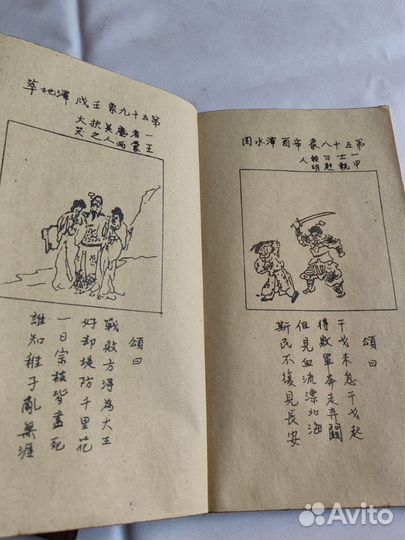 第五十八象辛酉澤水困
一甲士執刀趕殺胡人
頌曰
干戈未息干戈起
得敗軍奔走弃關
但見血流漂北海
斯民不復見長安
第五十九象壬戌澤地萃
一王者蒙塵而美人扶之大笑
頌曰
戰敗方得為大王
好却堤防千里花
一日宗枝皆盡死
誰知稚子亂無涯
Avito